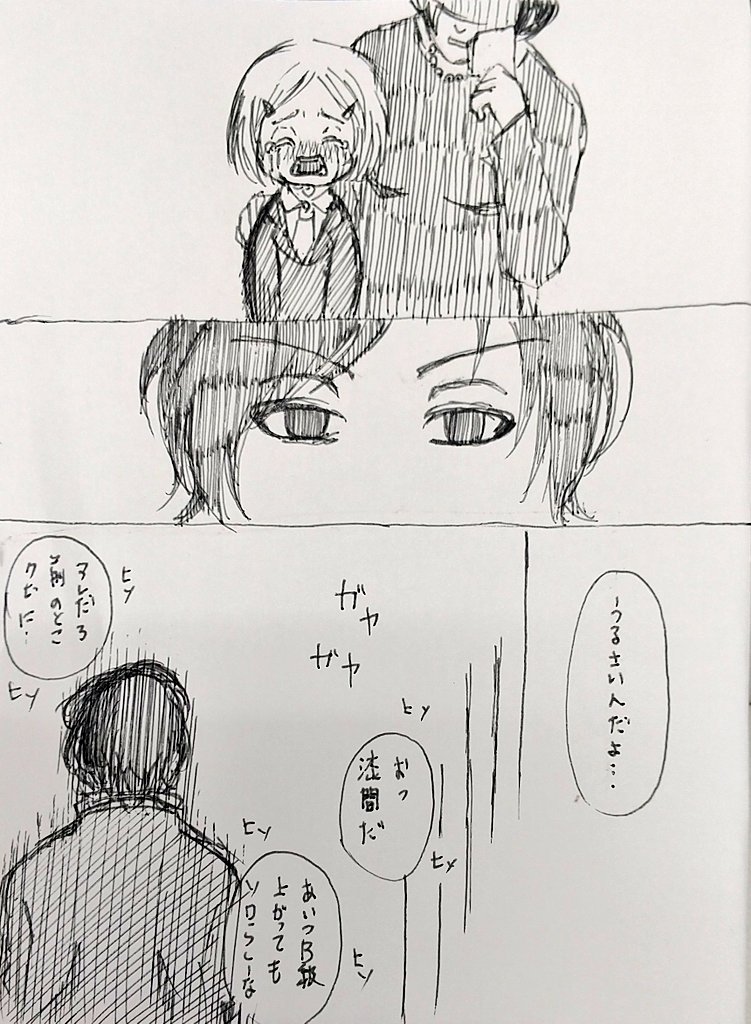 うるさいんだよ…
ガヤ
ガヤ
ヒソ
おっ
漆間だ
ヒソ
ヒソ
あいつB級
上がっても
ソロらしーな
ヒソ
ヒソ
アレだろ
前のとこ
クビに…
ヒソ